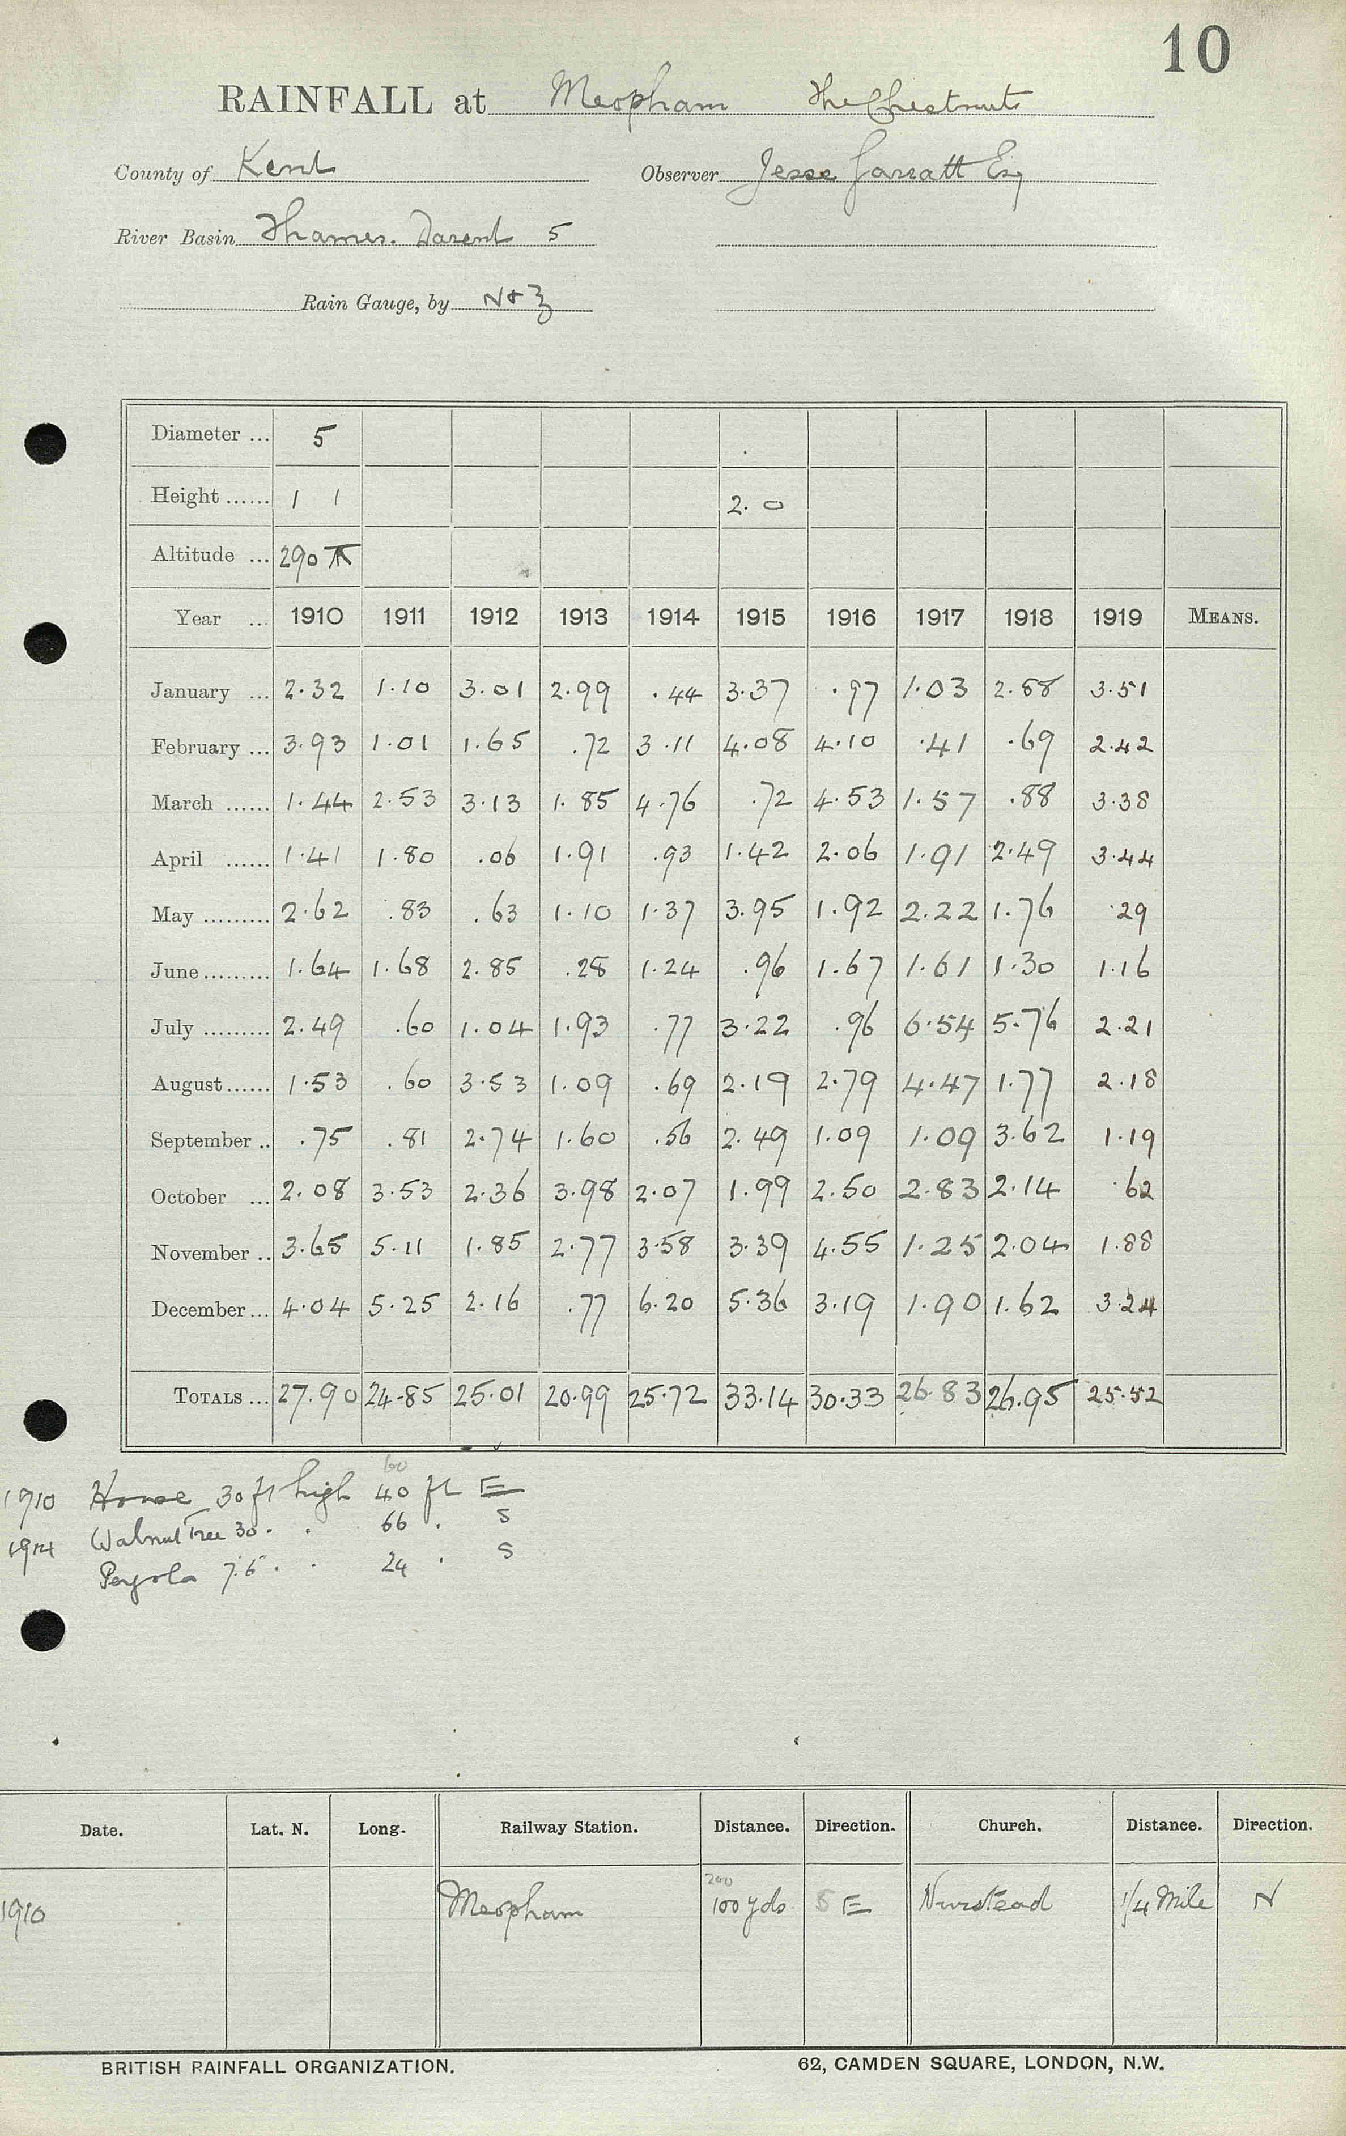 10
RAINFALL at Meopham The Chestnuts
County of Kent Observer Jesse Garratt Esq
River Basin Thames. Darent 5
Rain Gauge, by N & Z
Diameter ... 5
Height ...... 1 1 2. 0
Altitude ... 290
Year ... 1910 1911 1912 1913 1914 1915 1916 1917 1918 1919 MEANS.
January ... 2.32 1.10 3.01 2.99 .44 3.37 .97 1.03 2.88 3.51
February ... 3.93 1.01 1.65 .72 3.11 4.08 4.10 .41 .69 2.42
March ...... 1.44 2.53 3.13 1.85 4.76 .72 4.53 1.57 .88 3.38
April ...... 1.41 1.80 .06 1.91 .93 1.42 2.06 1.91 2.49 3.44
May ......... 2.62 .83 .63 1.10 1.37 3.95 1.92 2.22 1.76 .29
June ......... 1.64 1.68 2.85 .28 1.24 .96 1.67 1.61 1.30 1.16
July ......... 2.49 .60 1.04 1.93 .77 3.22 .96 6.54 5.76 2.21
August ...... 1.53 .60 3.53 1.09 .69 2.19 2.79 4.47 1.77 2.18
September .. .75 .81 2.74 1.60 .56 2.49 1.09 1.09 3.62 1.19
October ... 2.08 3.53 2.36 3.98 2.07 1.99 2.50 2.83 2.14 .62
November .. 3.65 5.11 1.85 2.77 3.58 3.39 4.55 1.25 2.04 1.88
December ... 4.04 5.25 2.16 .77 6.20 5.36 3.19 1.90 1.62 3.24
TOTALS ... 27.90 24.85 25.01 20.99 25.72 33.14 30.33 26.83 26.95 25.52
60
1910 House 30 ft high 40 ft E
1914 Walnut Tree 30 . . 66 . S
Pergola 7.6 . . 24 . S
Date. Lat. N. Long. Railway Station. Distance. Direction. Church. Distance. Direction.
200
1910 Meopham 100 yds S E Nurstead 1/4 Mile N
BRITISH RAINFALL ORGANIZATION. 62, CAMDEN SQUARE, LONDON, N.W.